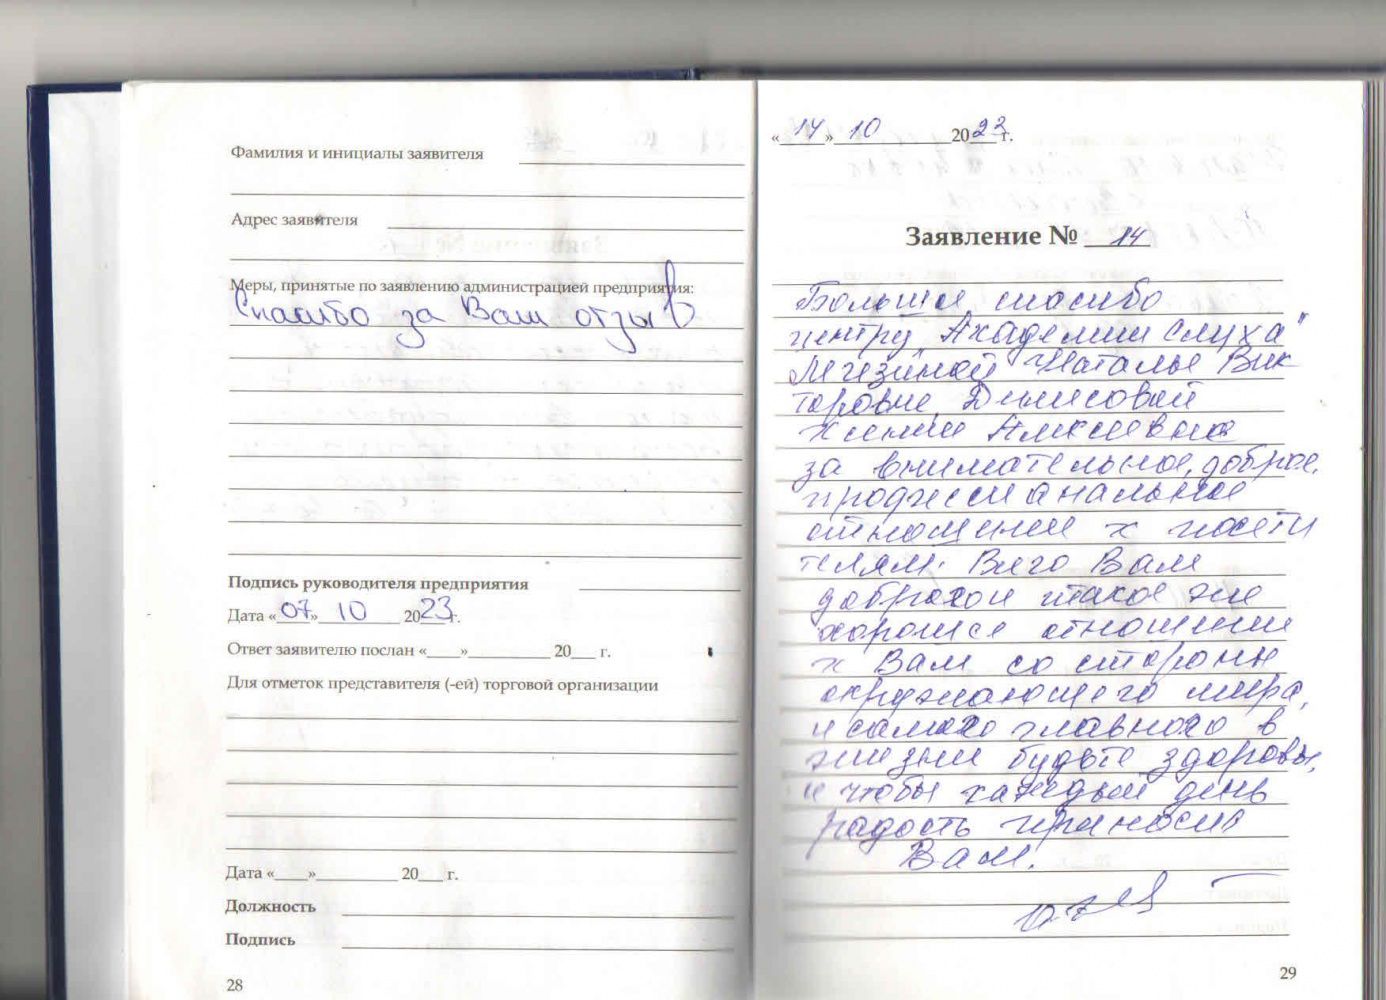 Фамилия и инициалы заявителя
Адрес заявителя
Меры, принятые по заявлению администрацией предприятия:
Спасибо за Ваш отзыв
Подпись руководителя предприятия
Дата «07» 10 2023 г.
Ответ заявителю послан «___» ______ 20__ г.
Для отметок представителя (-ей) торговой организации
Дата «___» ______ 20__ г.
Должность
Подпись
28
«14» 10 2023 г.
Заявление № 14
Большое спасибо
центру „Академии слуха"
Наталье Вик
торовне, Денисовой
Ксении Алексеевне
за внимательное, доброе,
профессианальное
отношение к посети
телям. Всего Вам
доброго и такое же
хорошее отношение
к Вам со стороны
окружающего мира,
и самого главного в
жизни будьте здоровы,
и чтобы каждый день
радость приносил
Вам.
29